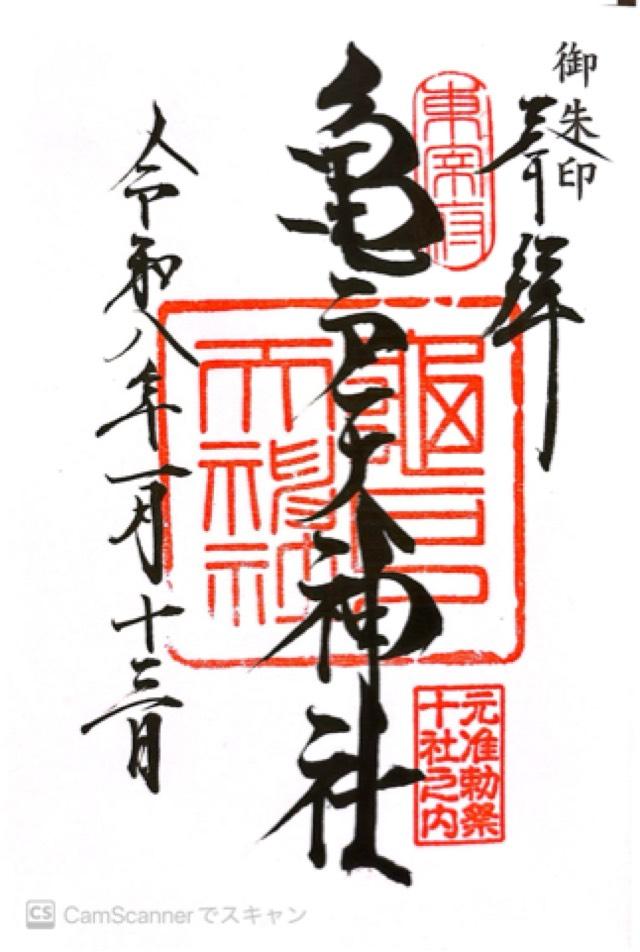 御朱印
奉拝
東宰府
亀戸天神社
亀戸
天神社
元准勅祭
十社之内
令和八年一月十三日
CS CamScannerでスキャン